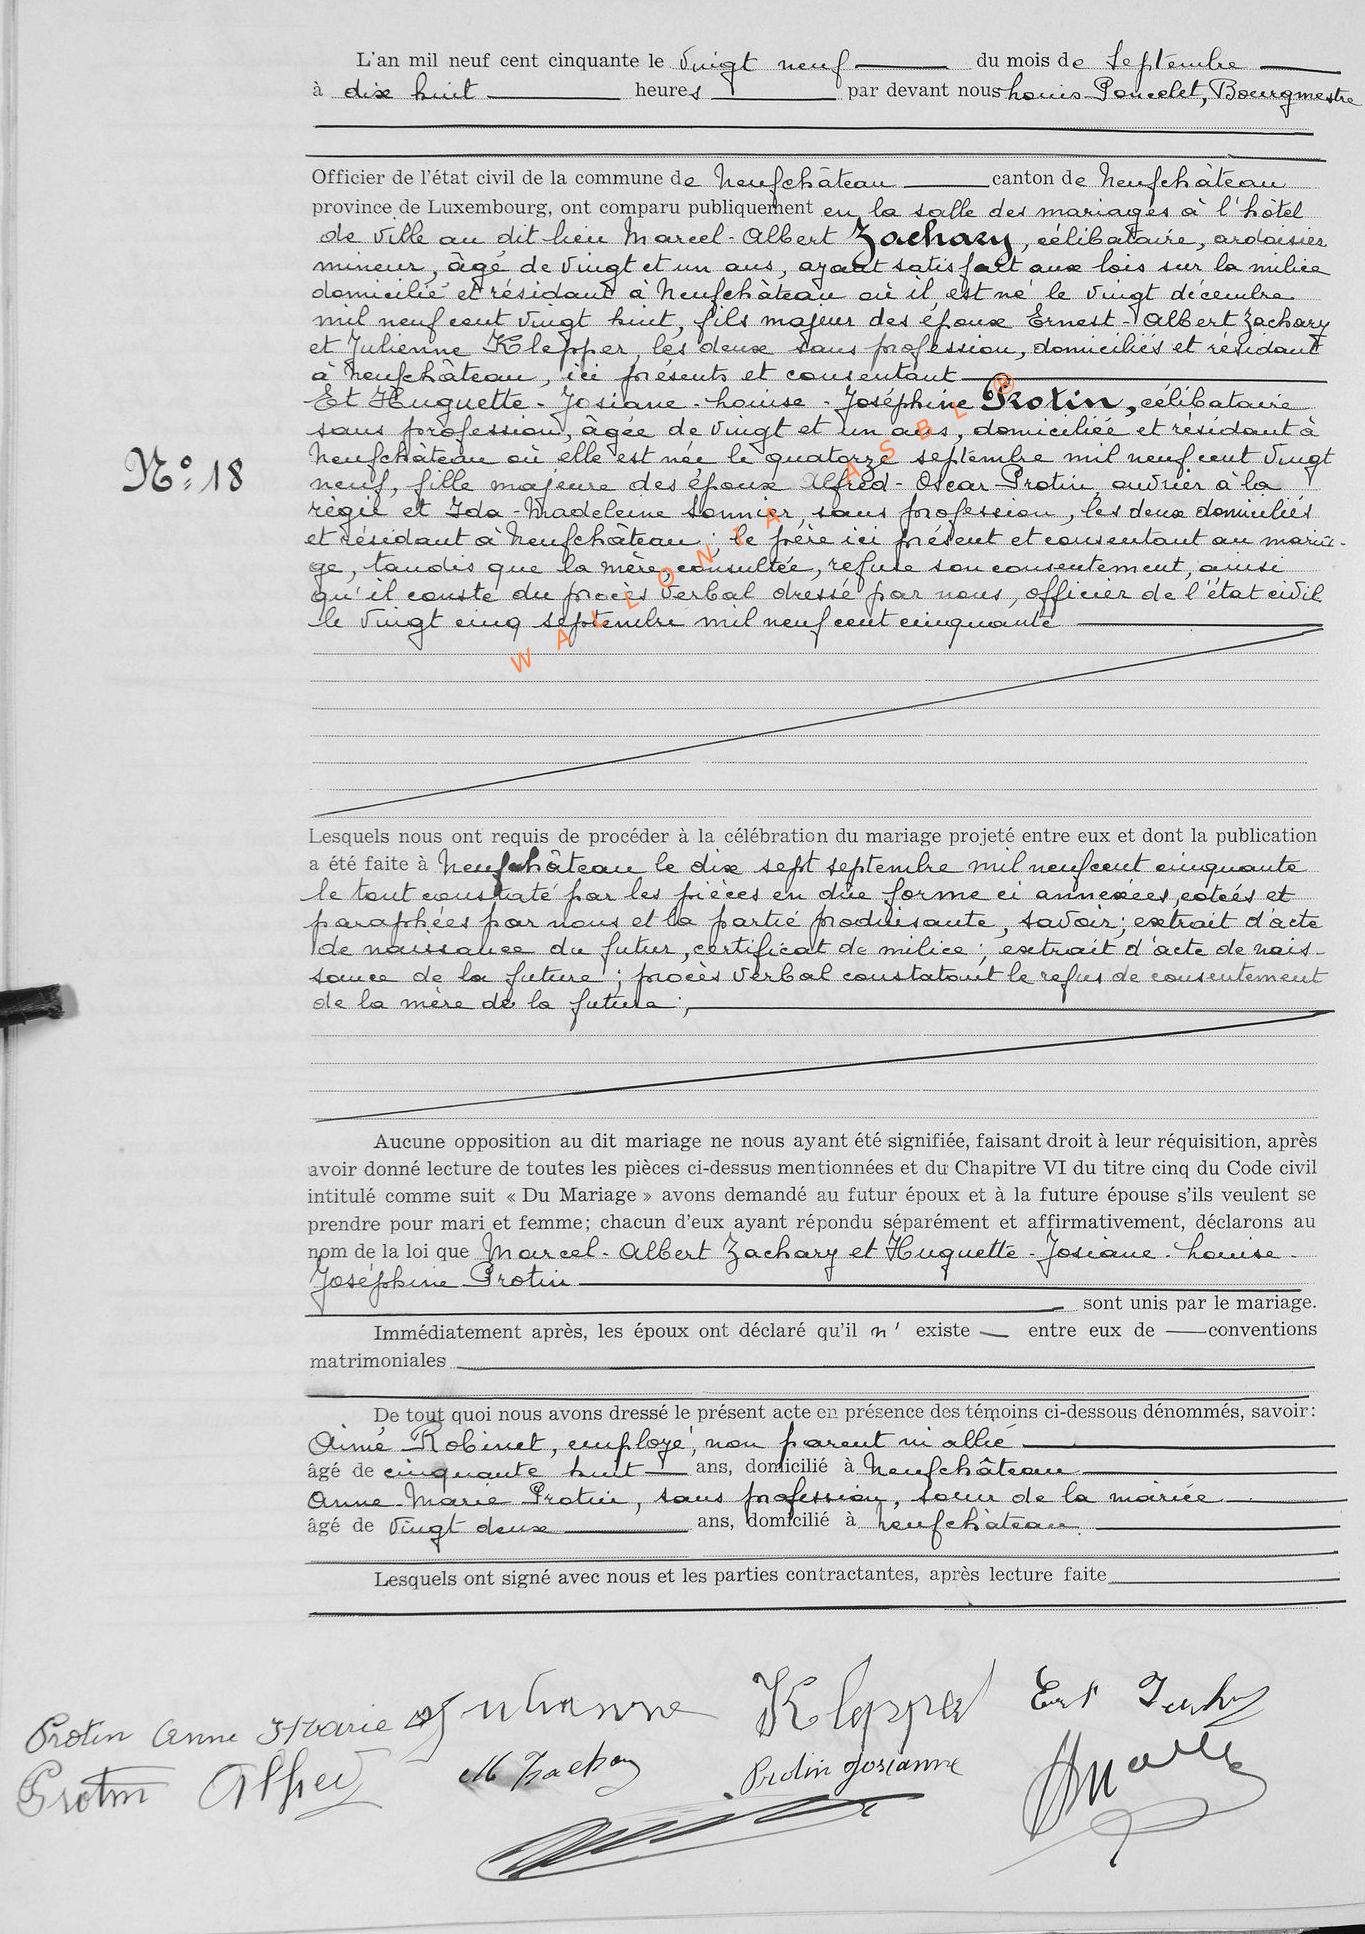 L'an mil neuf cent cinquante le vingt neuf du mois de Septembre
à dix huit heures par devant nous Louis Poncelet, Bourgmestre
Officier de l'état civil de la commune de Neufchâteau canton de Neufchâteau
province de Luxembourg, ont comparu publiquement en la salle des mariages à l'hôtel
de ville au dit lieu Marcel-Albert Zachary, célibataire, ardoisier
mineur, âgé de vingt et un ans, ayant satisfait aux lois sur la milice
domicilié et résidant à Neufchâteau où il est né le vingt décembre
mil neuf cent vingt huit, fils majeur des époux Ernest-Albert Zachary
et Julienne Klepper, les deux sans profession, domiciliés et résidant
à Neufchâteau, ici présents et consentant
Et Huguette-Josiane-Louise-Joséphine Protin, célibataire
sans profession, âgée de vingt et un ans, domiciliée et résidant à
Nº 18
Neufchâteau où elle est née le quatorze septembre mil neuf cent vingt
neuf, fille majeure des époux Alfred-Oscar Protin ouvrier à la
régie et Ida-Madeleine Sonnier, sans profession, les deux domiciliés
et résidant à Neufchâteau; le père ici présent et consentant au maria-
ge, tandis que la mère, consultée, refuse son consentement, ainsi
qu'il conste du procès verbal dressé par nous, officier de l'état civil
le vingt cinq septembre mil neuf cent cinquante
WALLONIA ASBL ®
Lesquels nous ont requis de procéder à la célébration du mariage projeté entre eux et dont la publication
a été faite à Neufchâteau le dix sept septembre mil neuf cent cinquante
le tout constaté par les pièces en due forme ci annexées, cotées et
paraphées par nous et la partie produisante, savoir; extrait d'acte
de naissance du futur, certificat de milice; extrait d'acte de nais-
sance de la future; procès verbal constatant le refus de consentement
de la mère de la future;
Aucune opposition au dit mariage ne nous ayant été signifiée, faisant droit à leur réquisition, après
avoir donné lecture de toutes les pièces ci-dessus mentionnées et du Chapitre VI du titre cinq du Code civil
intitulé comme suit « Du Mariage » avons demandé au futur époux et à la future épouse s'ils veulent se
prendre pour mari et femme; chacun d'eux ayant répondu séparément et affirmativement, déclarons au
nom de la loi que Marcel-Albert Zachary et Huguette-Josiane-Louise-
Joséphine Protin
sont unis par le mariage.
Immédiatement après, les époux ont déclaré qu'il n' existe entre eux de conventions
matrimoniales
De tout quoi nous avons dressé le présent acte en présence des témoins ci-dessous dénommés, savoir:
Aimé Robinet, employé, non parent ni allié
âgé de cinquante huit ans, domicilié à Neufchâteau
Anne-Marie Protin, sans profession, sœur de la mariée
âgé de vingt deux ans, domicilié à Neufchâteau
Lesquels ont signé avec nous et les parties contractantes, après lecture faite
Protin Anne Marie Julienne Klepper
Protin Alfred M Zachary Protin Josianne